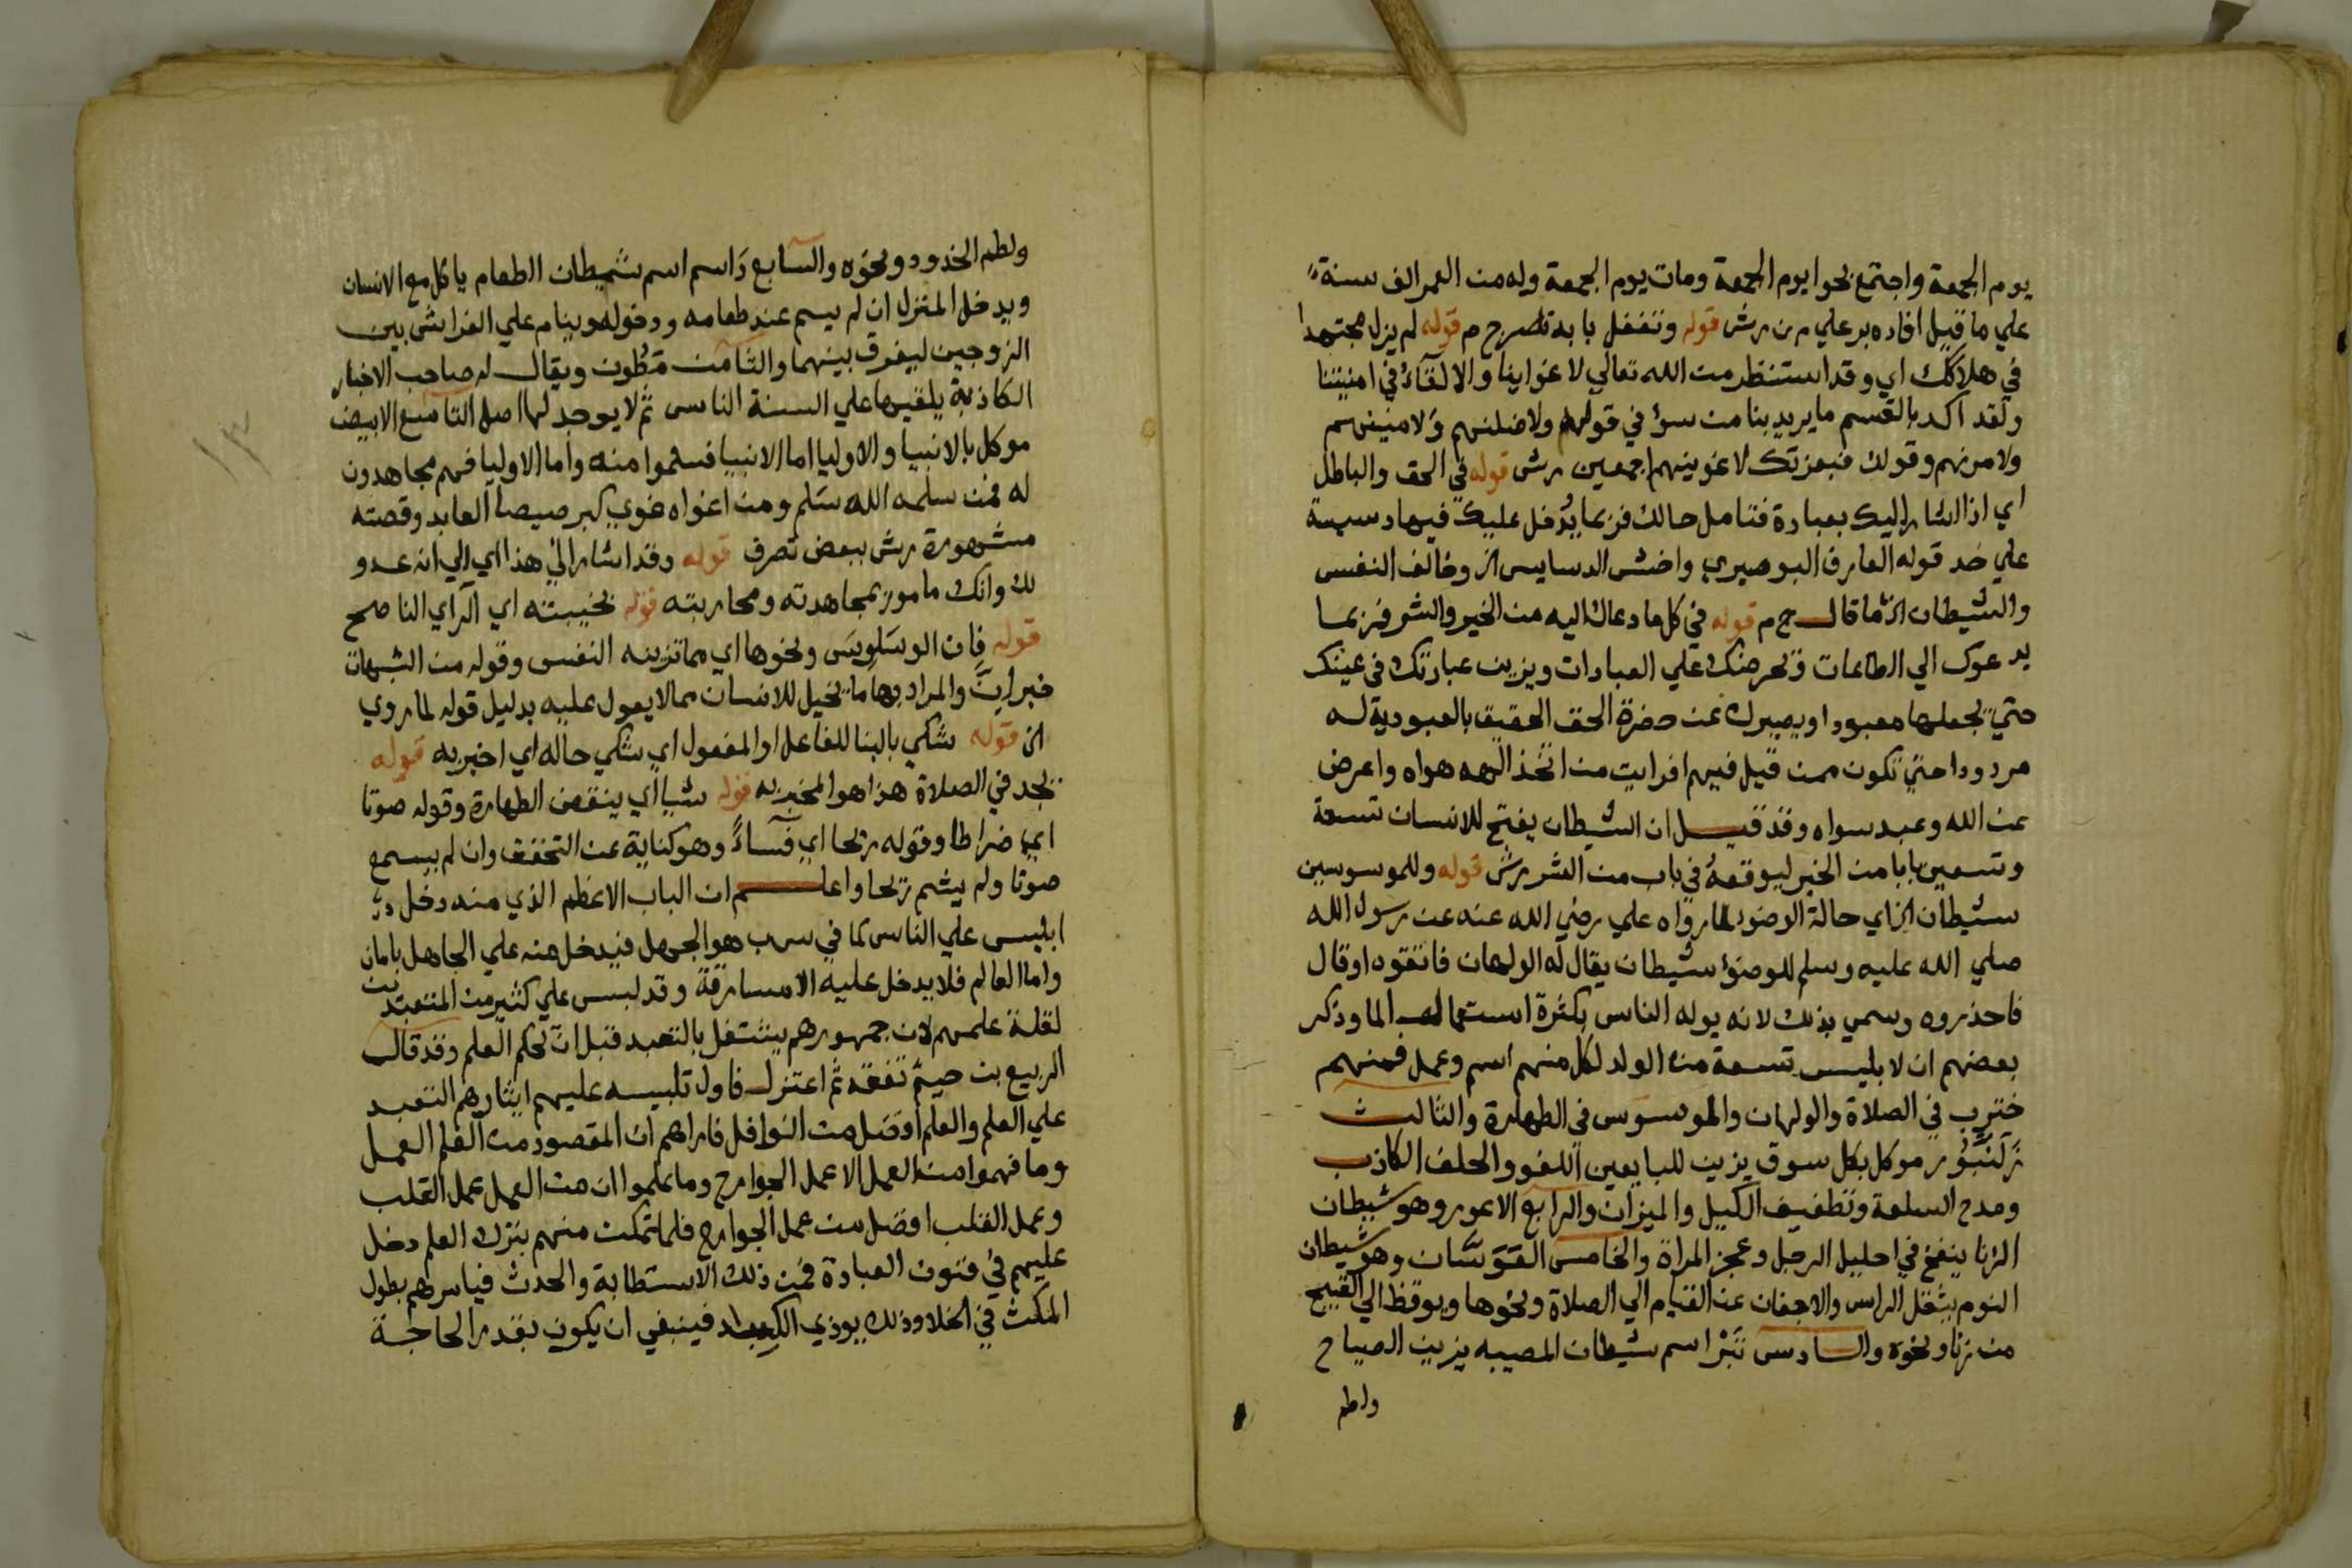 يوم الجمعة واجتمع بحوا يوم الجمعة ومات يوم الجمعة وله من العمر الف سنة
علي ما قيل افاده بر علي م ن رش قوله وتغفل با به تضرح م قوله لم يزل مجتهدا
في هلاكك اي وقد استنظر من الله تعالي لاغواينا والالقاء في امنيتنا
ولقد اكد بالقسم ما يريد بنا من سؤ في قوله ولاضلنهم ولامنينهم
ولامرنهم وقوله فبعزتك لاغوينهم اجمعين رش قوله في الحق والباطل
اي اذا اشار اليك بعبادة فتامل حالك فربما يدخل عليك فيها دسيسة
علي حد قوله العارف البوصيري واخش الدسايس الخ وخالف النفس
والشيطان الخ ما قال ج م قوله في كل ما دعاك اليه من الخير والشر فربما
يدعوك الي الطاعات ويحرضك علي العبادات ويزين عبادتك في عينك
حتي يجعلها معبودا ويصيرك عن حضرة الحق الحقيق بالعبودية له
مردودا حتي تكون ممن قيل فيهم افرايت من اتخذ الهه هواه واعرض
عن الله وعبد سواه وقد قيل ان الشيطان يفتح للانسان تسعة
وتسعين بابا من الخير ليوقعه في باب من الشر رش قوله وللموسوسين
شيطان الخ اي حالة الوضوء لما رواه علي رضي الله عنه عن رسول الله
صلي الله عليه وسلم للوضوء شيطان يقال له الولهان فاتقوه او قال
فاحذروه وسمي بذلك لانه يوله الناس بكثرة استعمالهم الما وذكر
بعضهم ان لابليس تسعة من الولد لكل منهم اسم وعمل فمنهم
خنزب في الصلاة والولهان والموسوس في الطهارة والثالث
زلنبور موكل بكل سوق يزين للبايعين اللغو والحلف الكاذب
ومدح السلعة وتطفيف الكيل والميزان والرابع الاعور وهو شيطان
الزنا ينفخ في احليل الرجل وعجز المراة والخامس الوسنان وهو شيطان
النوم يثقل الراس والاجفان عن القيام الي الصلاة ونحوها ويوقظ الي القبيح
من زنا ونحوه والسادس تبر اسم شيطان المصيبه يزين الصياح
ولطم
ولطم الخدود ونحوه والسابع داسم اسم شيطان الطعام ياكل مع الانسان
ويدخل المنزل ان لم يسم عند طعامه ودخوله وينام علي الفراش بين
الزوجين ليفرق بينهما والثامن مطون ويقال له صاحب الاخبار
الكاذبة يلقيها علي السنة الناس ثم لا يوجد لها اصل التاسع الابيض
موكل بالانبيا والاوليا اما الانبيا فسلموا منه واما الاوليا فهم مجاهدون
له فمن سلمه الله سلم ومن اغواه غوي كبرصيصا العابد وقصته
مشهورة رش ببعض تصرف قوله وقد اشار الي هذا اي الي انه عدو
لك وانك مامور بمجاهدته ومحاربته قوله بخيبته اي الراي الناصح
قوله فان الوساويس ونحوها اي مما تزينه النفس وقوله من الشبهات
خبر ان والمراد بها ما يخيل للانسان مما لا يعول عليه بدليل قوله لما روي
الخ قوله شكي بالبنا للفاعل او المفعول اي شكي حاله اي اخبر به قوله
يجد في الصلاة هذا هو المخبر به قوله شيا اي ينقض الطهارة وقوله صوتا
اي ضراطا وقوله ريحا اي فساء وهو كناية عن التحقق وان لم يسمع
صوتا ولم يشم ريحا واعلم ان الباب الاعظم الذي منه دخل
ابليس علي الناس كما في سرب هو الجهل فيدخل منه علي الجاهل بامان
واما العالم فلا يدخل عليه الا مسارقة وقد لبس علي كثير من المتعبدين
لقلة علمهم لان جمهورهم يشتغل بالتعبد قبل ان يحكم العلم وقد قال
الربيع بن خيثم تفقه ثم اعتزل فاول تلبيسه عليهم ايثارهم التعبد
علي العلم والعلم افضل من النوافل فاراهم ان المقصود من العلم العمل
وما فهموا من العمل الا عمل الجوارح وما علموا ان من العمل عمل القلب
وعمل القلب افضل من عمل الجوارح فلما تمكن منهم بترك العلم دخل
عليهم في فنون العبادة فمن ذلك الاستطابة والحدث فيامرهم بطول
المكث في الخلا وذلك يوذي الكبد فينبغي ان يكون بقدر الحاجة
١٣